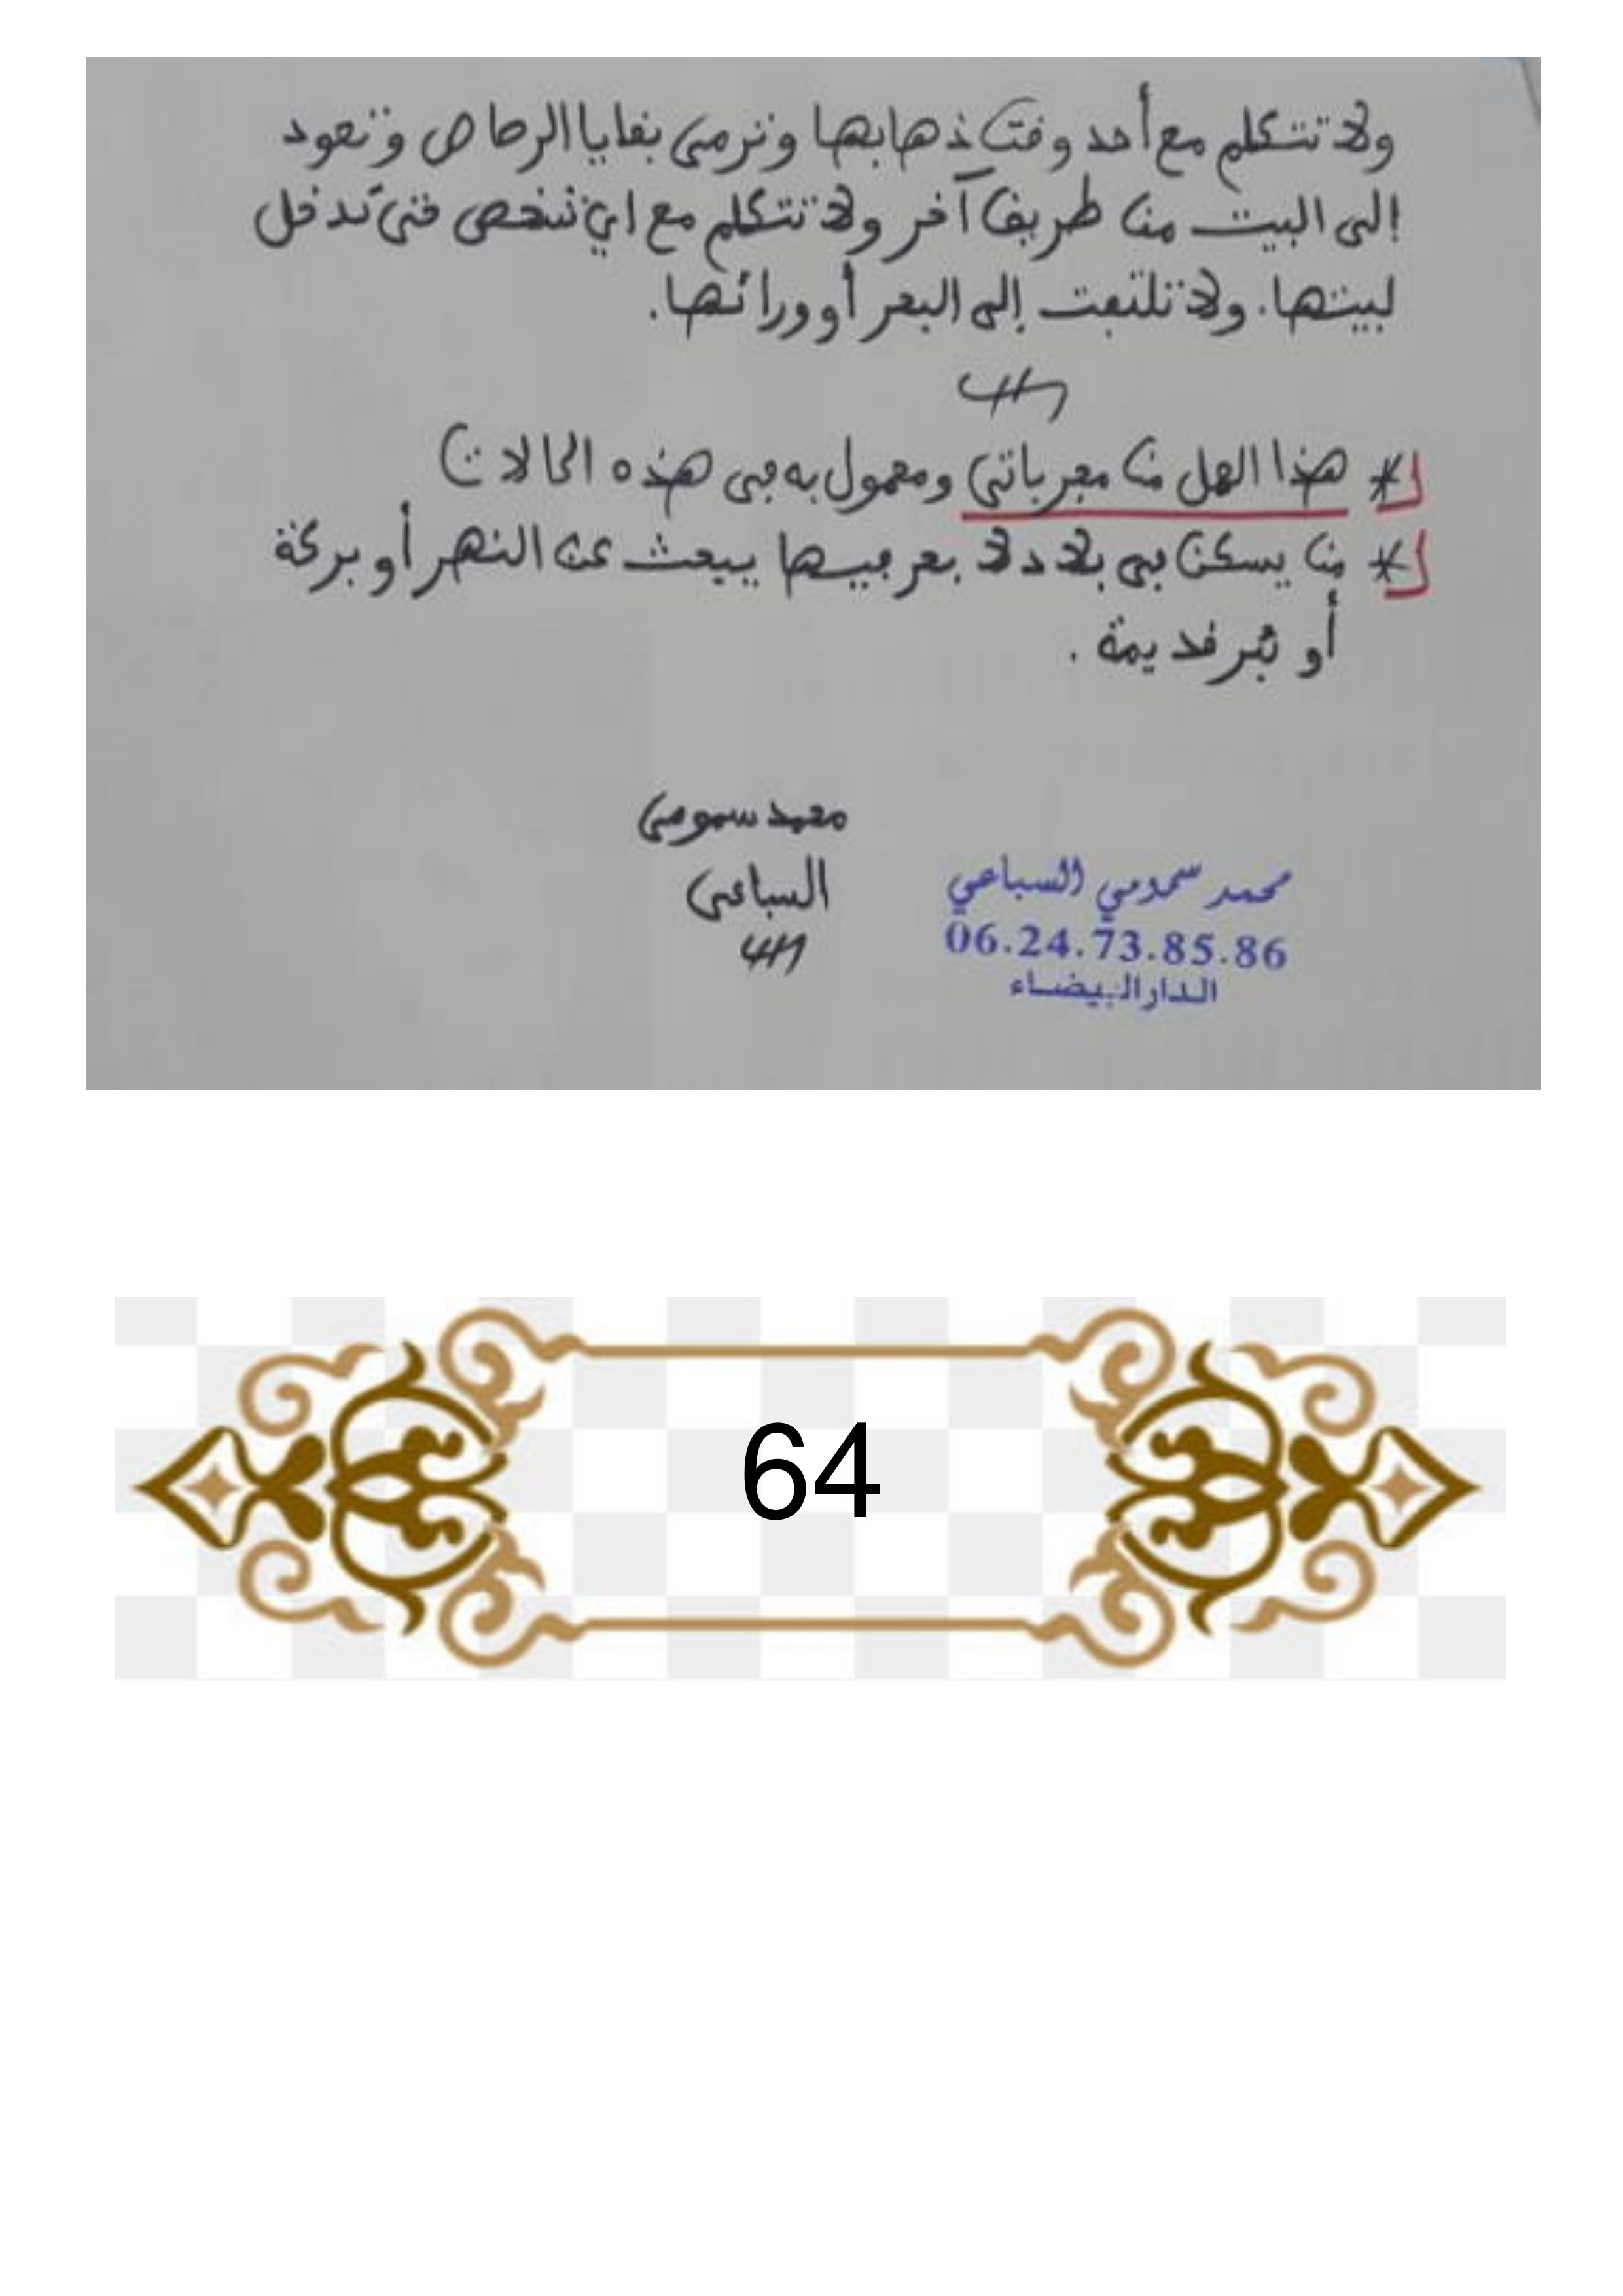 ولا تتكلم مع أحد وقت ذهابها وترمي بقايا الرصاص وتعود
إلى البيت من طريق آخر ولا تتكلم مع اي شخص حتى تدخل
لبيتها. ولا تلتفت إلى البحر أو ورائها.
* هذا العمل من مجرباتي ومعمول به في هذه الحالات
* من يسكن في بلاد لا بحر فيها يبحث عن النهر أو بركة
أو بئر قديمة.
محمد سمومي
السباعي
محمد سمومي السباعي
06.24.73.85.86
الدار البيضاء
64